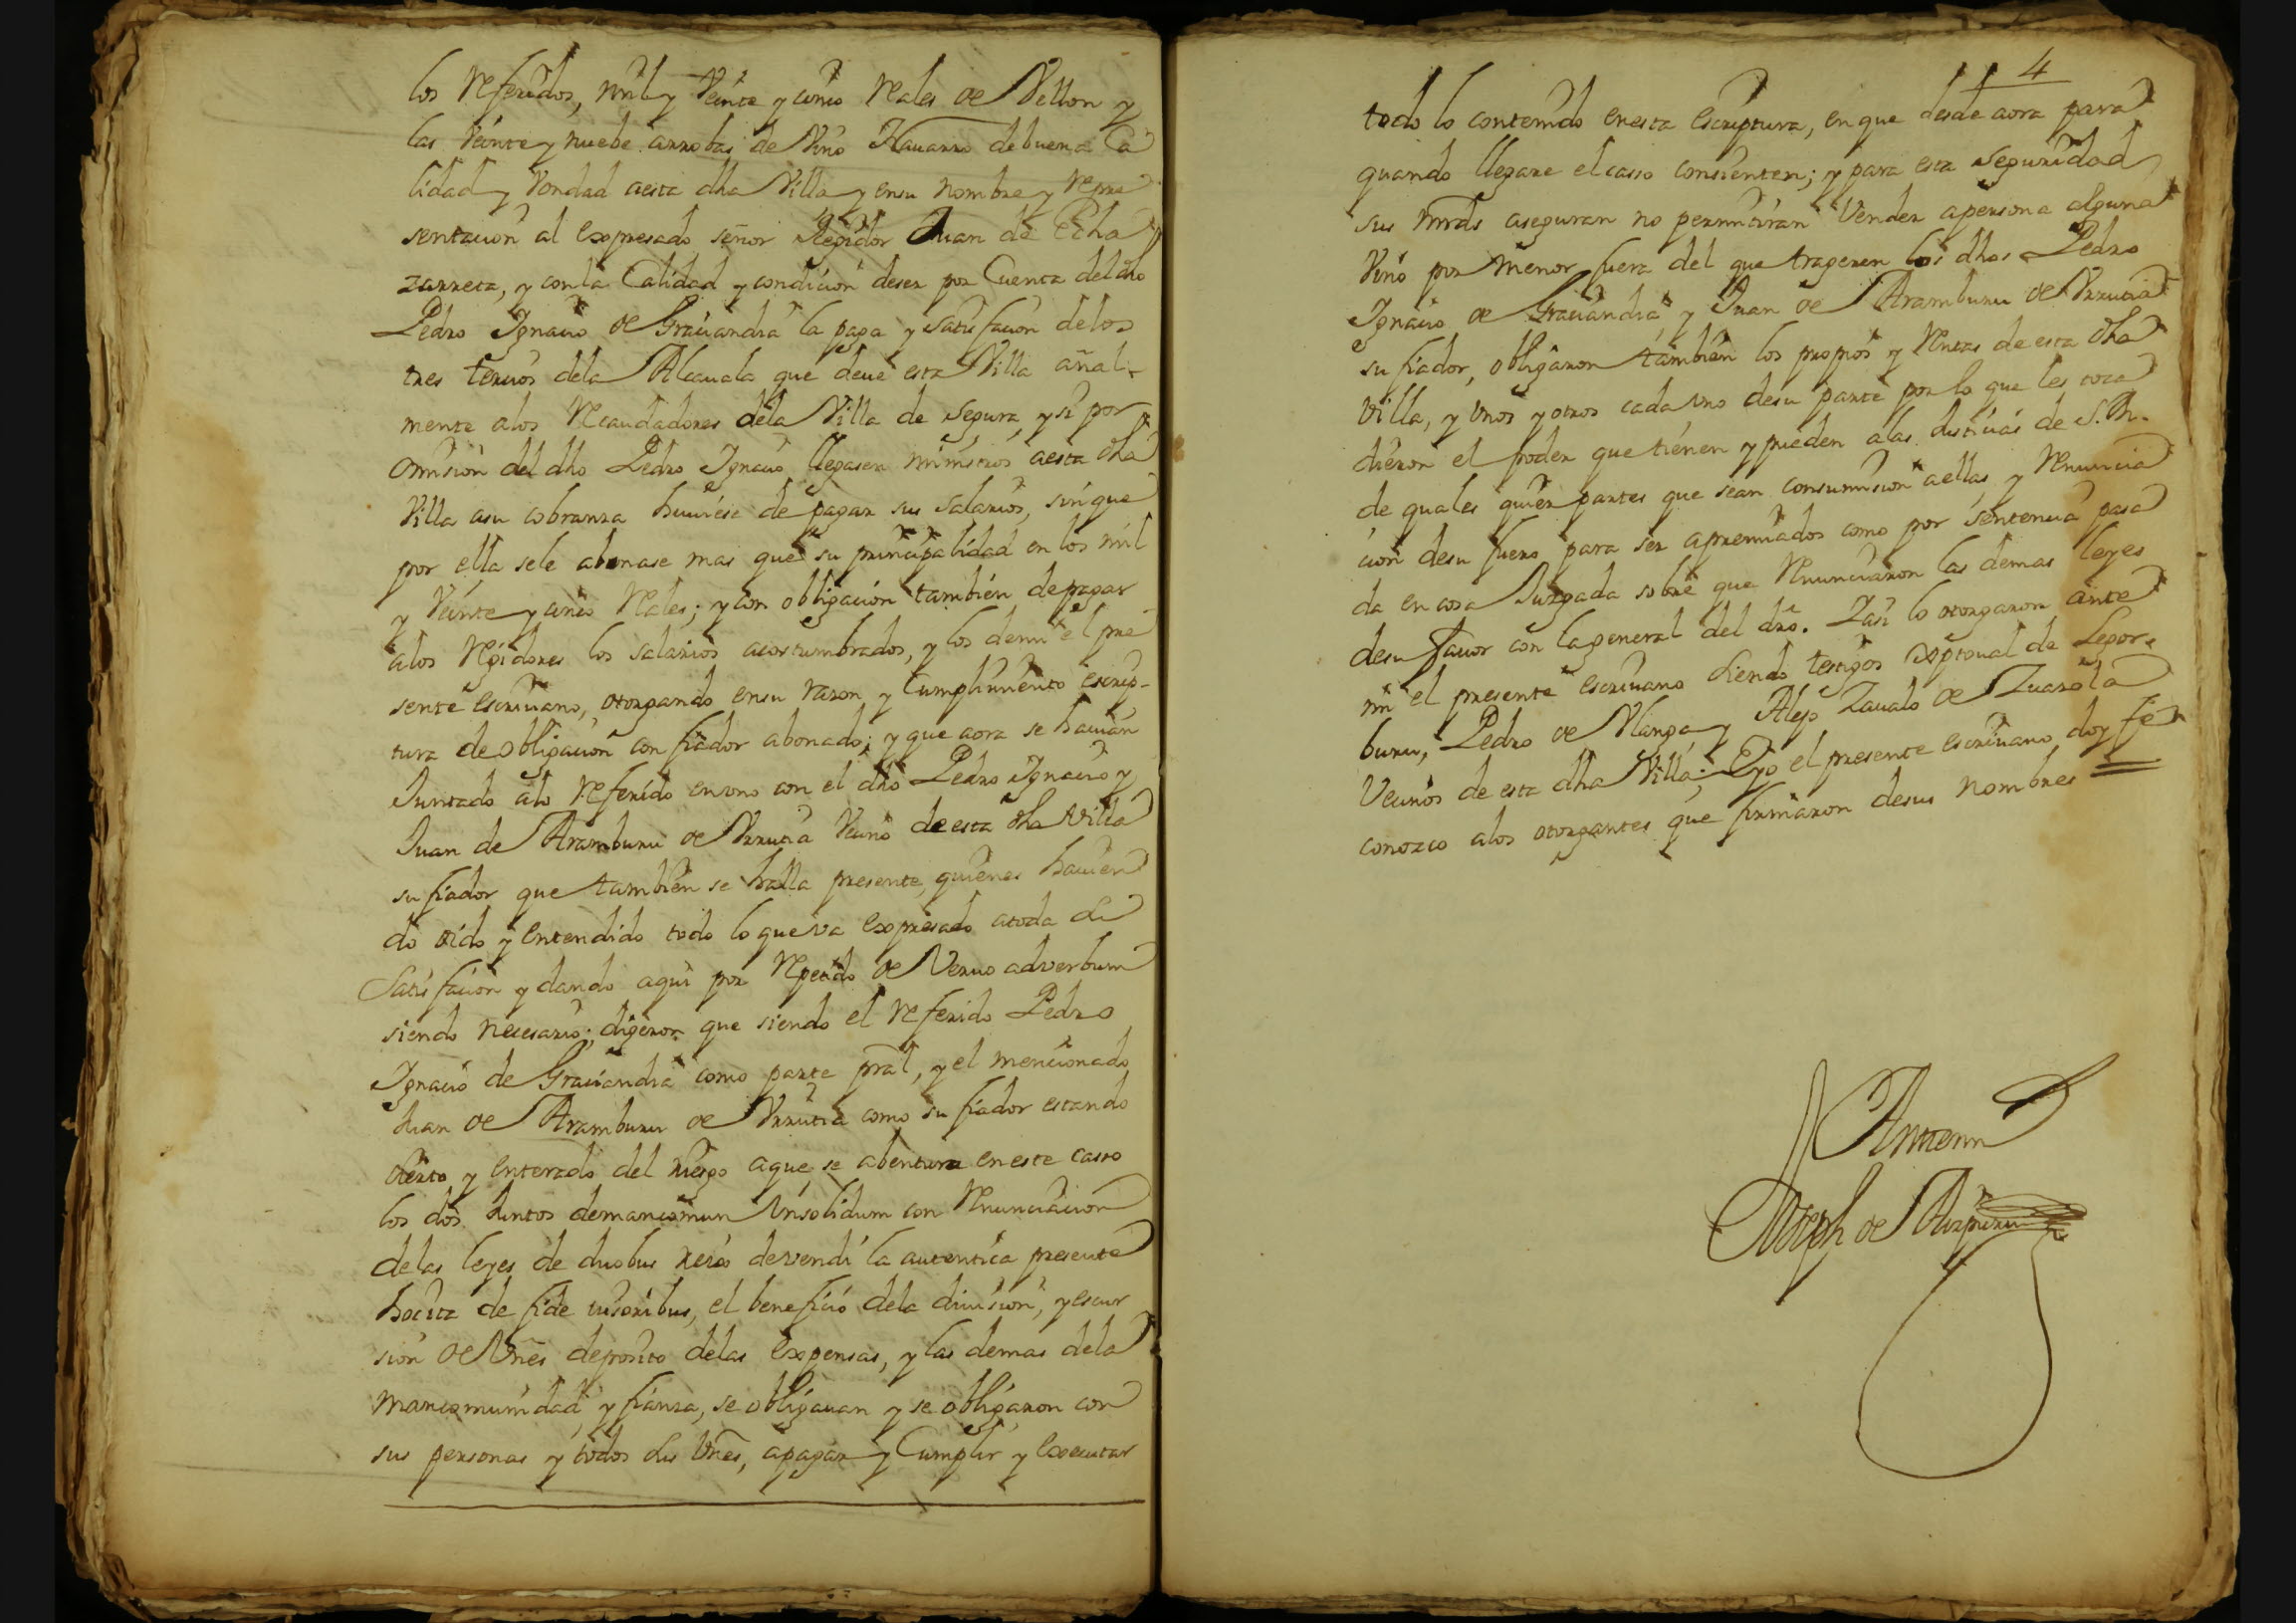 los referidos, mil y Veinte y cinco reales de Vellon y
las Veinte y nuebe arrobas de Vino Nauarro de buena Ca
lidad y Vondad aesta dha Villa y ensu nombre y repre
sentacion al expresado señor Regidor Juan de Echa
zarreta, y conla Calidad y condicion deser por Cuenta deldho
Pedro Ignacio de Graciandia la paga y satisfacion delos
tres tercios dela Alcauala que deue esta Villa añal-
mente alos recaudadores dela Villa de Segura, y si por
omision del dho Pedro Ignacio llegasen ministros aesta dha
Villa asu cobranza huuiese de pagar sus salarios, sinque
por ella sele abonase mas que su principalidad en los mil
y Veinte y cinco reales; y con obligacion tambien depagar
alos regidores los salarios acostumbrados, y los demi el pre
sente escriuano, otorgando ensu razon y Cumplimiento escrip-
tura de obligacion con fiador abonado; y que aora se hauian
Juntado alo referido enuno con el dho Pedro Ignacio y
Juan de Aramburu de Vrrutia Vecino de esta dha villa
su fiador que tambien se halla presente, quienes hauien
do oido y entendido todo lo queva expresado atoda su
Satisfacion y dando aqui por repetido de Veruo adverbum
siendo necesario; digeron que siendo el referido Pedro
Ignacio de Graciandia como parte pral, y el mencionado
Juan de Aramburu de Vrrutia como su fiador estando
cierto y enterado del riesgo aque se abentura eneste casso
los dos Juntos demancomun Insolidum con renunciacion
delas leyes de duobus reios devendi la autentica presente
hocita de fide iusoribus, el beneficio dela diuision, y escur
sion de Vnes deposito delas expensas, y las demas dela
mancomunidad y fianza, se obligauan y se obligaron con
sus personas y todos sus Vnes, apagar y Cumplir y executar
4
todo lo contenido enesta escriptura, en que desde aora para
quando llegare el casso consienten; y para esta seguridad
sus mrds aseguran no permitiran Vender apersona alguna
Vino por menor fuera del que trageren los dhos Pedro
Ignacio de Graciandia y Juan de Aramburu de Vrrutia
su fiador, obligaron tambien los propios y rentas de esta dha
Villa, y Vnos y otros cada vno desu parte por lo que les toca
dieron el poder que tienen y pueden alas Justicias de S. M.
de quales quier partes que sean consumision aellas y renuncia
cion desu fuero para ser apremiados como por sentencia pasa
da en cosa Juzgada sobre que renunciaron las demas leyes
desu fauor con la general del dro. Iasi lo otorgaron ante
mi el presente escriuano siendo testigos xptoual de Legor-
buru, Pedro de Vlanga y Alejo Zaualo de Zuazola
Vecinos de esta dha Villa; Eyo el presente escriuano doy fe
conozco alos otorgantes que firmaron desus nombres
Antemi
Joseph de Aizpuru